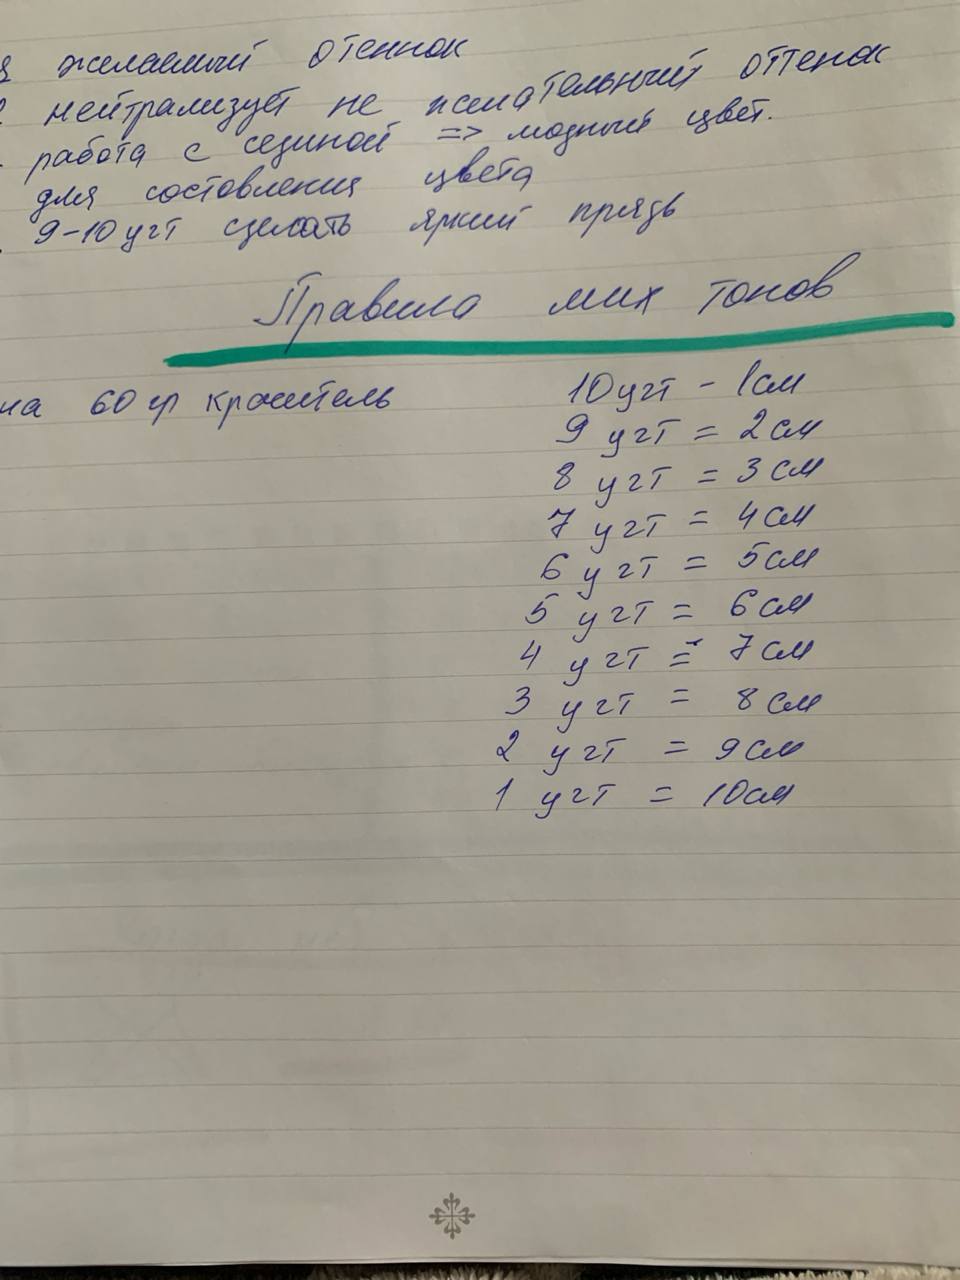 желаемый отеннок
нейтрализует не желательный оттенок
работа с сединой => модный цвет.
для состовления цвета
9-10 угт сделать яркий прядь
Правила мих тонов
на 60 гр краситель
10 угт - 1 см
9 угт = 2 см
8 угт = 3 см
7 угт = 4 см
6 угт = 5 см
5 угт = 6 см
4 угт = 7 см
3 угт = 8 см
2 угт = 9 см
1 угт = 10 см